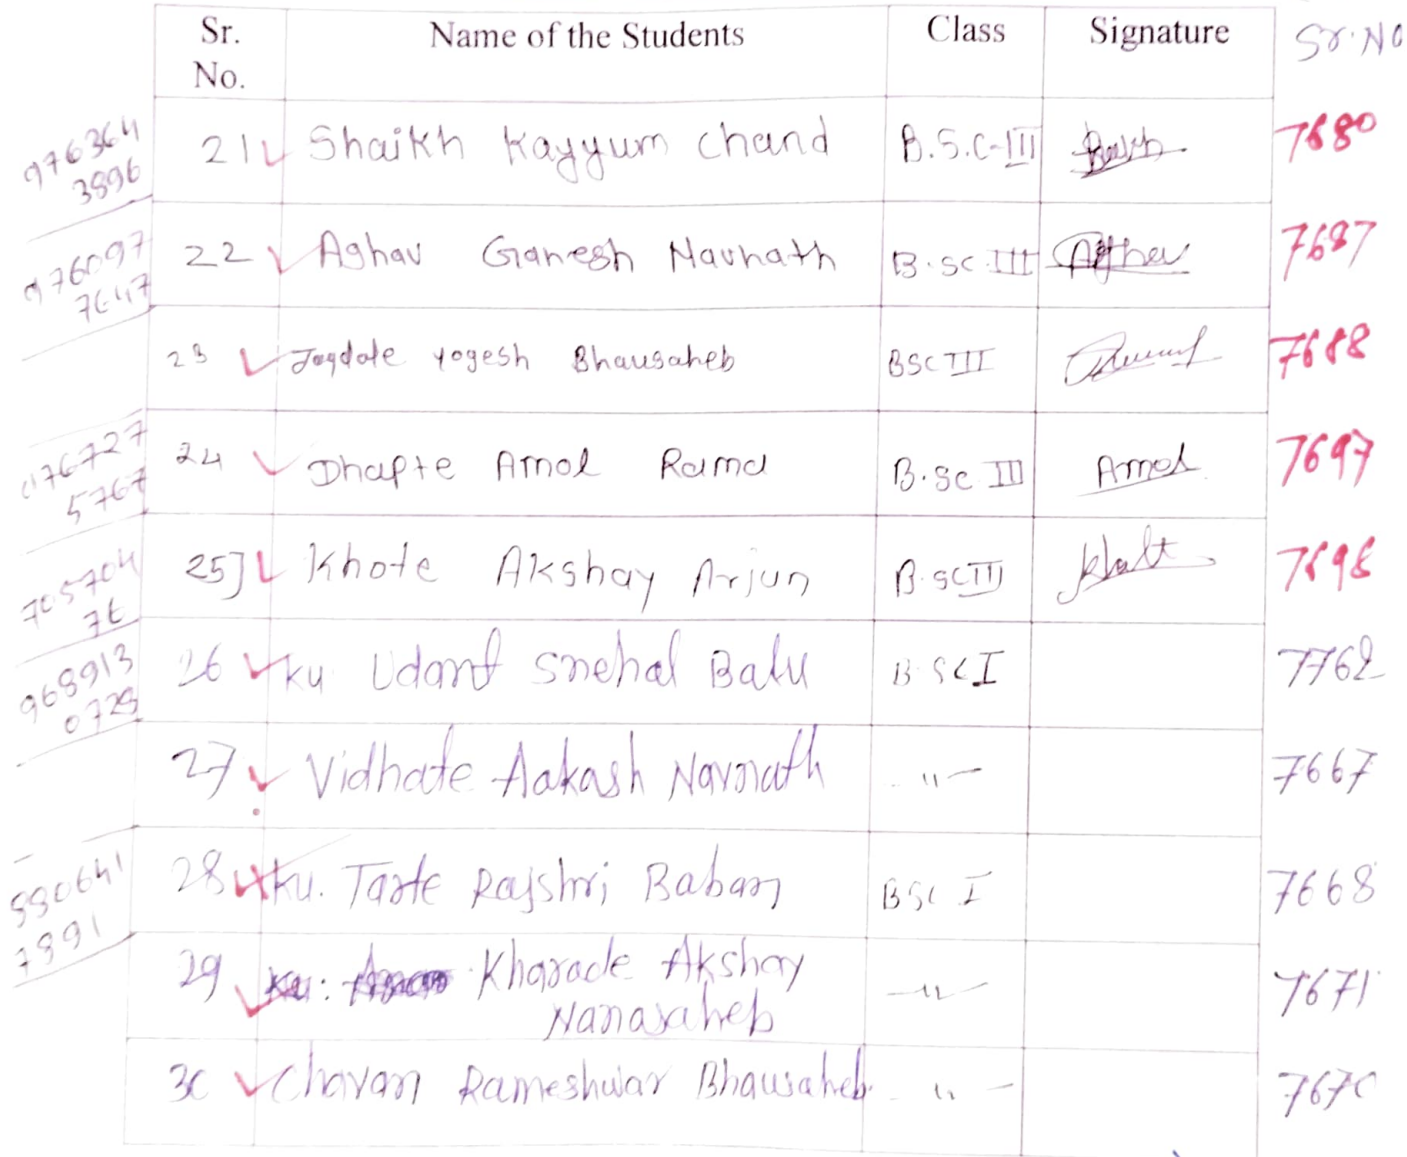 Sr. No. Name of the Students Class Signature Sr. No
976364 3896 21 Shaikh Kayyum Chand B.S.C-III 7680
976097 7647 22 Aghav Ganesh Navnath B.SC.III 7687
23 Jagdale Yogesh Bhausaheb BSC III 7688
76727 5767 24 Dhapte Amol Rama B.Sc III Amol 7697
705704 76 25] Khote Akshay Arjun B.SCIII 7698
968913 0729 26 ku Snehal Balu B.SCI 7762
27 Vidhate Aakash Navnath -"- 7667
880641 7891 28 ku. Tarte Rajshri Baban BSC I 7668
29 Kharade Akshay -"- 7671
Nanasaheb
30 Chavan Rameshwar Bhausaheb. " - 7670